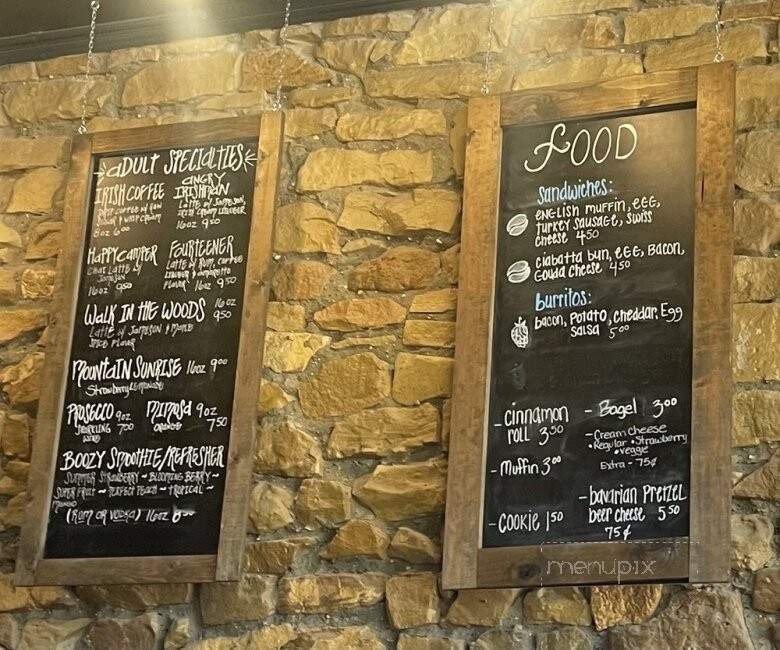 ADULT SPECIALTIES
IRISH COFFEE
DRIP COFFEE W/ RAW
SUGAR & WHIP CREAM
8oz 6⁰⁰
ANGRY
IRISHMAN
LATTE W/ JAMESON,
IRISH CREAM LIQUEUR
16oz 9⁵⁰
HAPPY CAMPER
CHAI LATTE W/
JAMESON
16oz 9⁵⁰
FOURTEENER
LATTE W/ RUM, COFFEE
LIQUEUR & AMARETTO
FLAVOR 16oz 9⁵⁰
WALK IN THE WOODS 16oz
9⁵⁰
LATTE W/ JAMESON & MAPLE
SPICE FLAVOR
MOUNTAIN SUNRISE 16oz 9⁰⁰
Strawberry Lemonade
PROSECCO 9oz
SPARKLING 7⁰⁰
WINE
MIMOSA 9oz
ORANGE 7⁵⁰
BOOZY SMOOTHIE/REFRESHER
SUMMER STRAWBERRY ~ BLOOMING BERRY ~
SUPER FRUIT ~ PERFECT PEACH ~ TROPICAL ~
MANGO
(RUM OR VODKA) 16oz
FOOD
Sandwiches:
ENGLISH MUFFIN, EGG,
TURKEY SAUSAGE, SWISS
CHEESE 4⁵⁰
ciabatta bun, EGG, Bacon,
GOUDA CHEESE 4⁵⁰
burritos:
bacon, Potato, cheddar, Egg
salsa 5⁰⁰
- cinnamon
roll 3⁵⁰
- Muffin 3⁰⁰
- COOKIE 1⁵⁰
- Bagel 3⁰⁰
- Cream cheese
• Regular • Strawberry
• Veggie
Extra - 75¢
- bavarian Pretzel
beer cheese 5⁵⁰
75¢
menupix